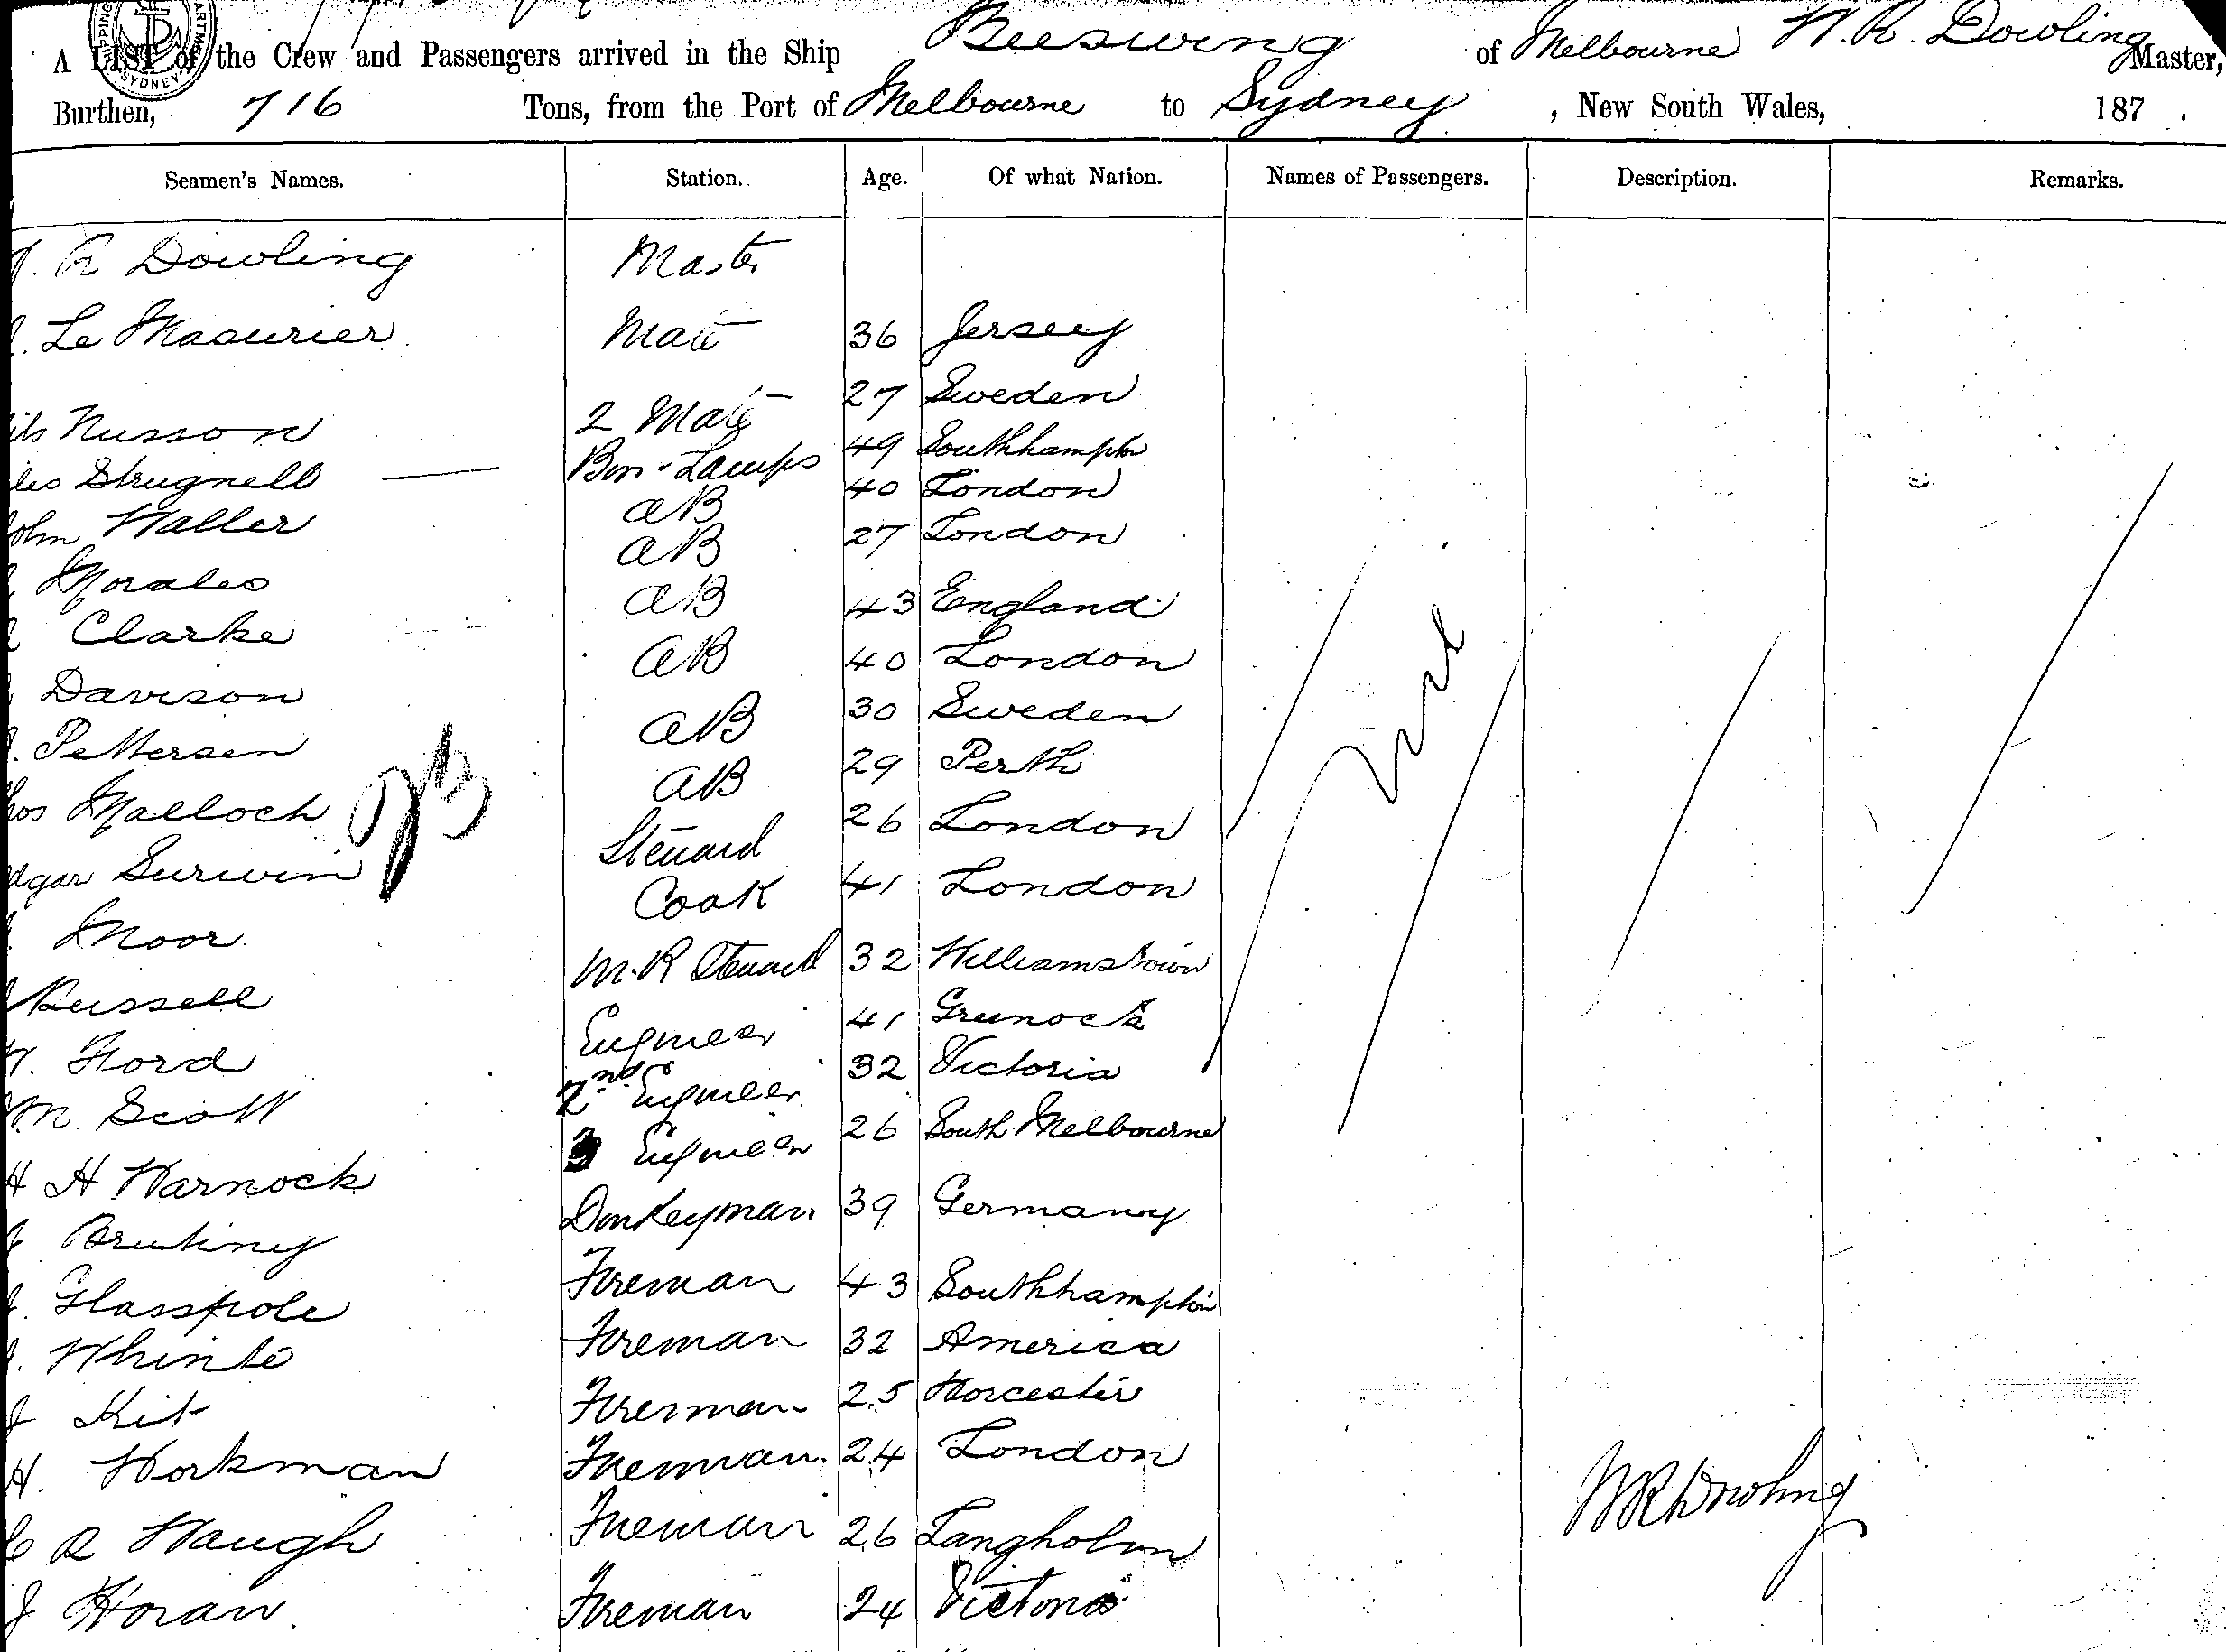 A LIST of the Crew and Passengers arrived in the Ship Beeswing of Melbourne W. R. Dowling Master,
Burthen, 716 Tons, from the Port of Melbourne to Sydney, New South Wales, 187 .
Seamen's Names. Station. Age. Of what Nation. Names of Passengers. Description. Remarks.
R Dowling Master
Le Masurier Mate 36 Jersey
Nusson 2 Mate 27 Sweden
Strugnell Bosn & Lamps 49 Southhampton
John Waller AB 40 London
Morales AB 27 London
Clarke AB 43 England
Davison AB 40 London
Pettersen AB 30 Sweden
Malloch AB 29 Perth
Surwin Steuard 26 London
Moor Cook 41 London
Russell M.R Steuard 32 Williamstown
Ford Engineer 41 Greenock
Scott 2nd Engineer 32 Victoria
H H Warnock 3 Engineer 26 South Melbourne
Donkeyman 39 Germany
Glasspole Fireman 43 Southhampton
Whinte Fireman 32 America
J Kit Fireman 25 Worcester
H. Workman Fireman 24 London
R Waugh Fireman 26 Langholm
J Horan Fireman 24 Victoria
WR Dowling